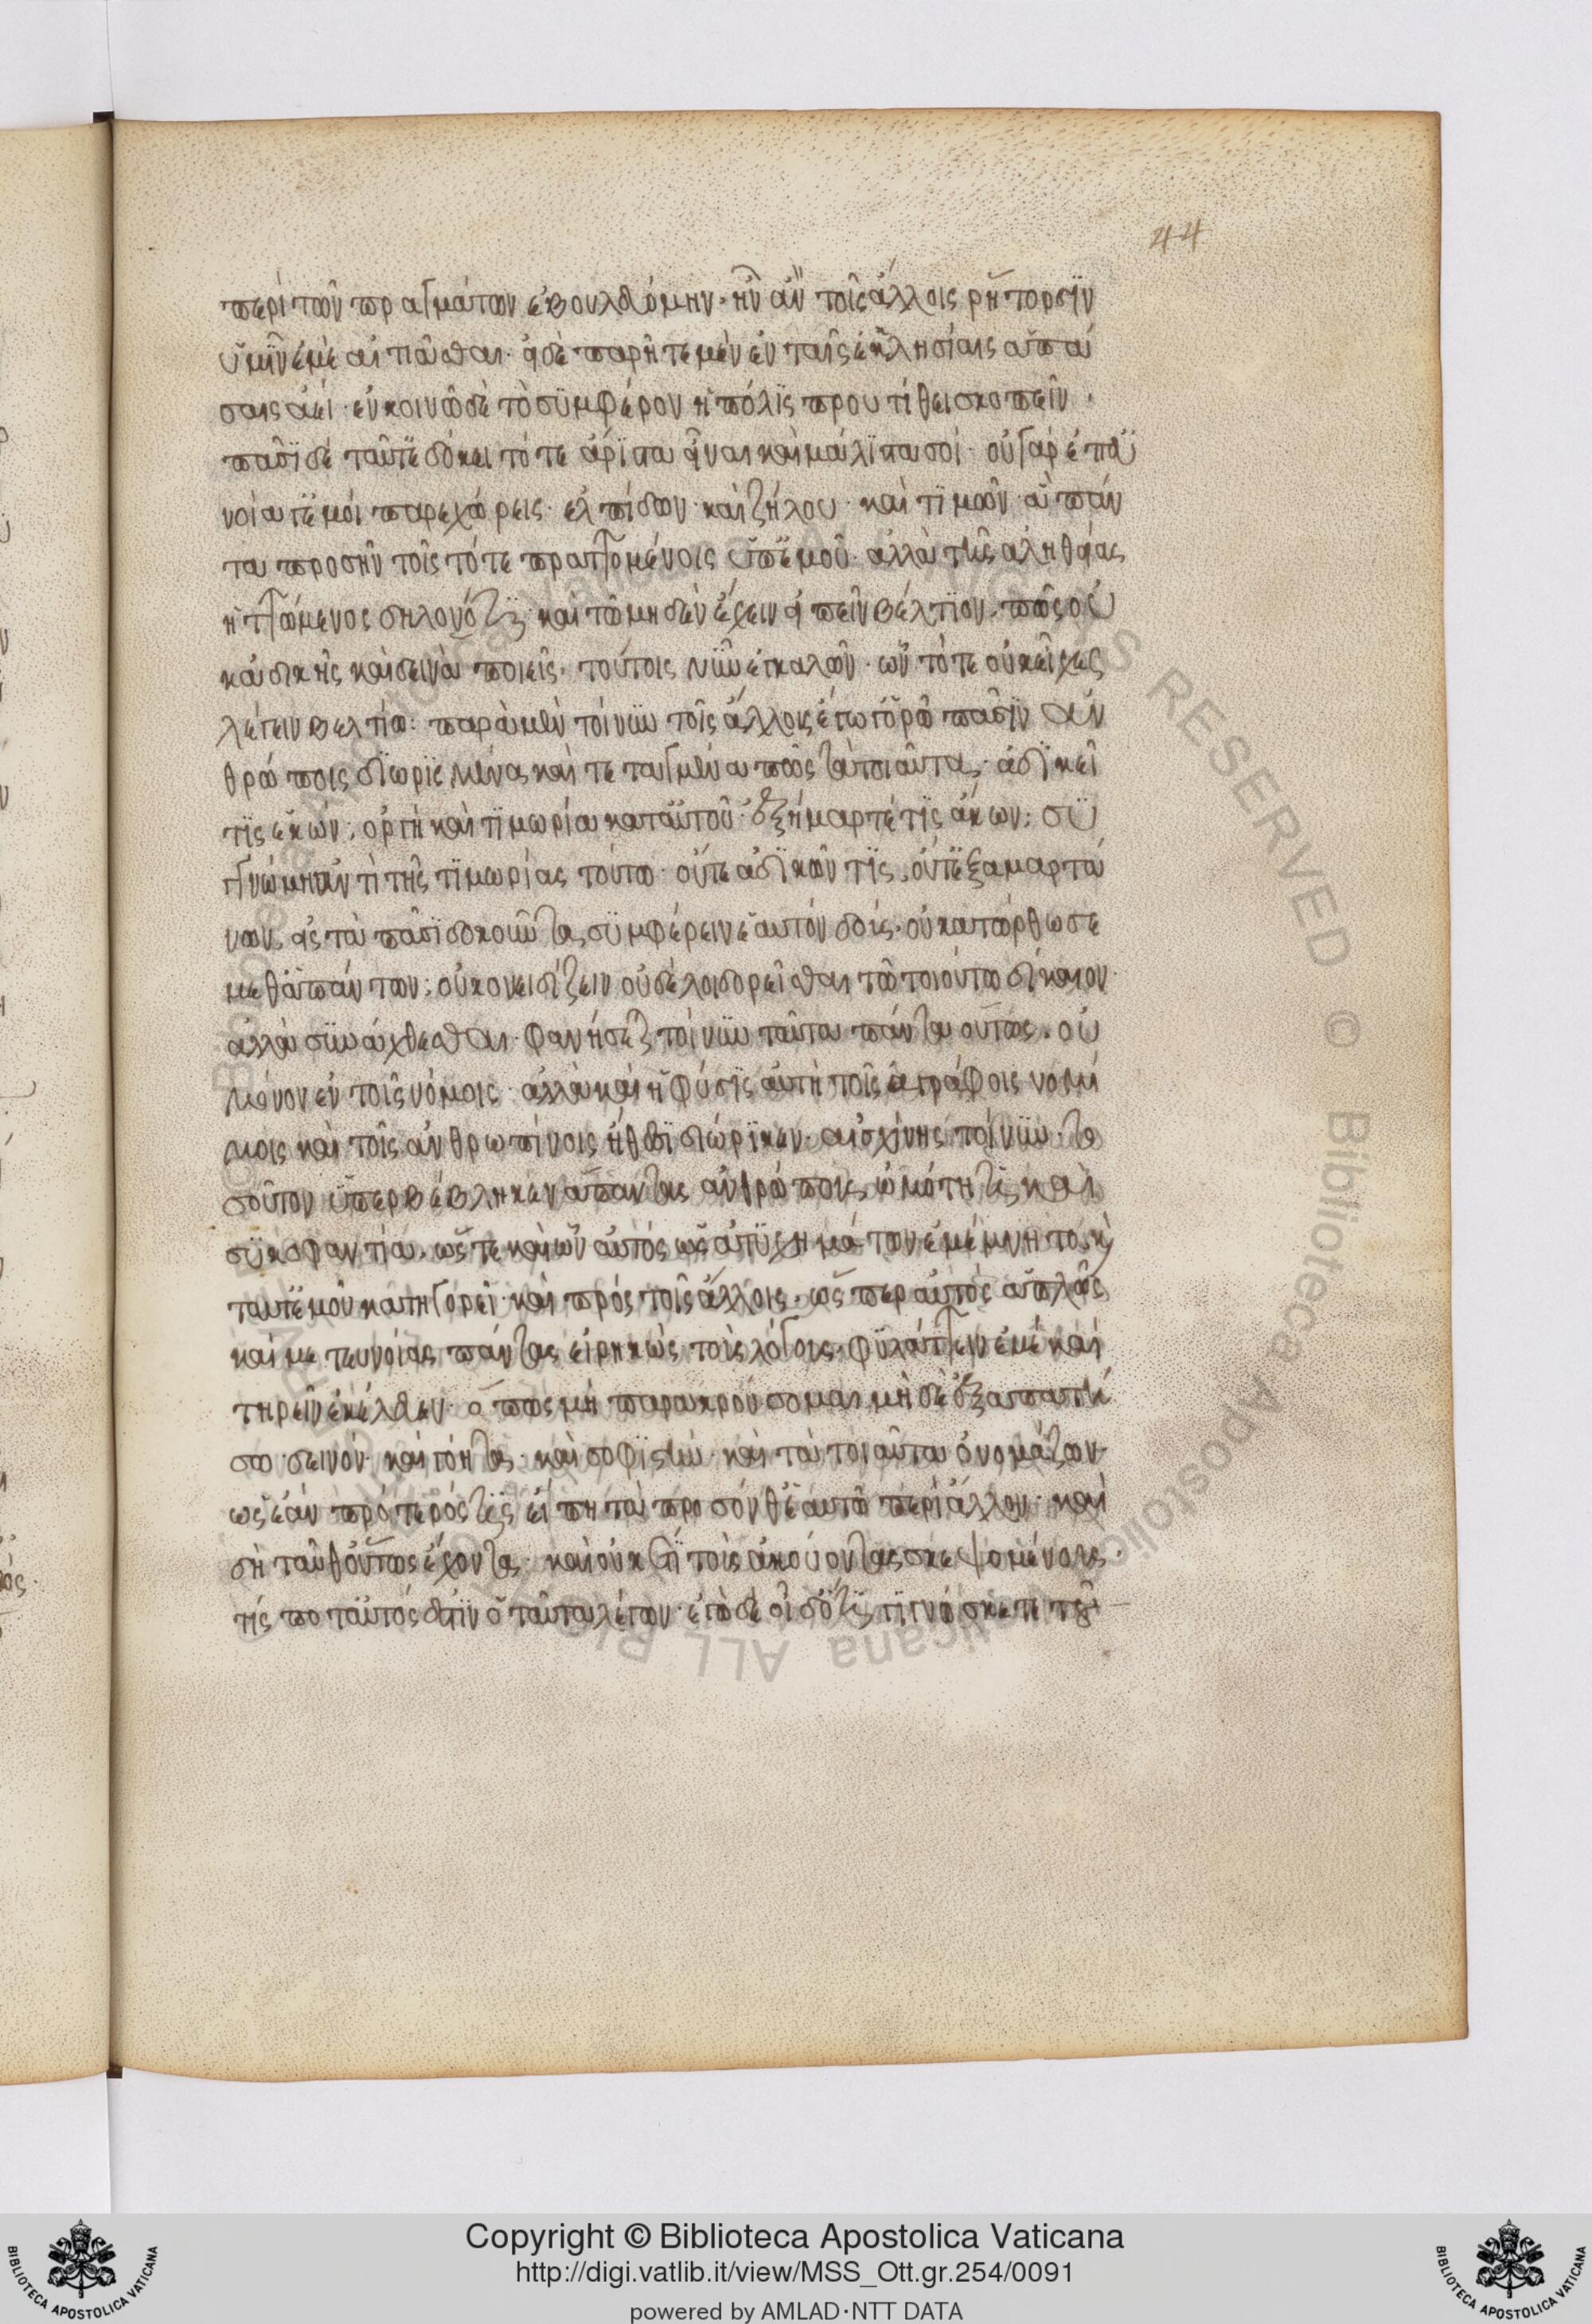 44
περὶ τῶν πραγμάτων ἐβουλευόμην· ἦν ἂν τοῖς ἄλλοις ῥήτορσϊν
ὑμῖν ἐμὲ αἰτιᾶσθαι· εἰ δὲ παρῆτε μὲν ἐν ταῖς ἐκκλησίαις ἁπά
σαις ἀεὶ· ἐν κοινῶ δὲ τὸ συμφέρον ἡ πόλϊς προυτίθει σκοπεῖν·
πᾶσϊ δὲ ταῦτ' ἐδόκει τότε ἄριστα εἶναι καὶ μάλϊστα σοί· οὐ γὰρ ἐπ' εὐ
νοία γ' ἐμοὶ παρεχώρεις· ἐλπίδων· καὶ ζήλου· καὶ τϊμῶν· ἃ πάν
τα προσῆν τοῖς τότε πραττομένοις ὑπ' ἐμοῦ· ἀλλὰ τῆς ἀληθείας
ἡττώμενος δηλονότϊ· καὶ τῶ μηδὲν ἔχειν εἰπεῖν βέλτϊον· πῶς οὐ
κ ἀδικεῖς καὶ δεινὰ ποιεῖς· τούτοις νῦν ἐγκαλῶν· ὧν τότε οὐκ εἶχες
λέγειν βελτίω: παρὰ μὲν τοίνυν τοῖς ἄλλοις ἔγωγ' ὁρῶ πᾶσϊν ἀν
θρώποις διωρισμένα καὶ τεταγμένα πως τὰ τοιαῦτα· ἀδϊκεῖ
τϊς ἑκών; ὀργὴ καὶ τϊμωρία κατ' αὐτοῦ· ἐξήμαρτέ τϊς ἄκων; συ
γνώμη ἀντὶ τῆς τϊμωρίας τούτω· οὔτε ἀδϊκῶν τϊς, οὔτ' ἐξαμαρτά
νων, εἰς τὰ πᾶσϊ δοκοῦντα συμφέρειν ἑαυτὸν δοὺς· οὐ κατώρθωσε
μεθ' ἁπάντων; οὐκ ὀνειδίζειν οὐδὲ λοιδορεῖσθαι τῶ τοιούτω δίκαιον·
ἀλλὰ συνάχθεσθαι· φανήσεται τοίνυν ταῦτα πάντα οὕτως· οὐ
μόνον ἐν τοῖς νόμοις· ἀλλὰ καὶ ἡ φύσϊς αὐτὴ τοῖς ἀγράφοις νομί
μοις καὶ τοῖς ἀνθρωπίνοις ἤθεσϊ διώρϊκεν· αἰσχίνης τοίνυν το
σοῦτον ὑπερβέβληκεν ἅπαντας ἀνθρώπους, ὠμότητϊ καὶ
συκοφαντία· ὥστε καὶ ὧν αὐτὸς ὡς ἀτυχημάτων ἐμέμνητο, κ(αὶ)
ταῦτ' ἐμοῦ κατηγορεῖ· καὶ πρὸς τοῖς ἄλλοις· ὥσπερ αὐτὸς ἁπλῶς
καὶ μετ' εὐνοίας πάντας εἰρηκὼς τοὺς λόγους· φυλάττειν ἐμὲ καὶ
τηρεῖν ἐκέλευεν· ὅπως μὴ παρακρούσομαι μὴδὲ ἐξαπατή
σω· δεινὸν· καὶ γόητα· καὶ σοφϊστὴν· καὶ τὰ τοιαῦτα ὀνομάζων·
ὡς ἐὰν πρότερός τϊς εἴπη τὰ προσόνθ' ἑαυτῶ περὶ ἄλλου· καὶ
δὴ ταῦθ' οὕτως ἔχοντα· καὶ οὐκ ἔτϊ τοὺς ἀκούοντας σκεψομένους·
τίς ποτ' αὐτός ἐστϊν ὁ ταῦτα λέγων· ἐγὼ δὲ οἶδ' ὅτϊ γϊγνώσκετε τοῦ
Copyright © Biblioteca Apostolica Vaticana
http://digi.vatlib.it/view/MSS_Ott.gr.254/0091
powered by AMLAD·NTT DATA